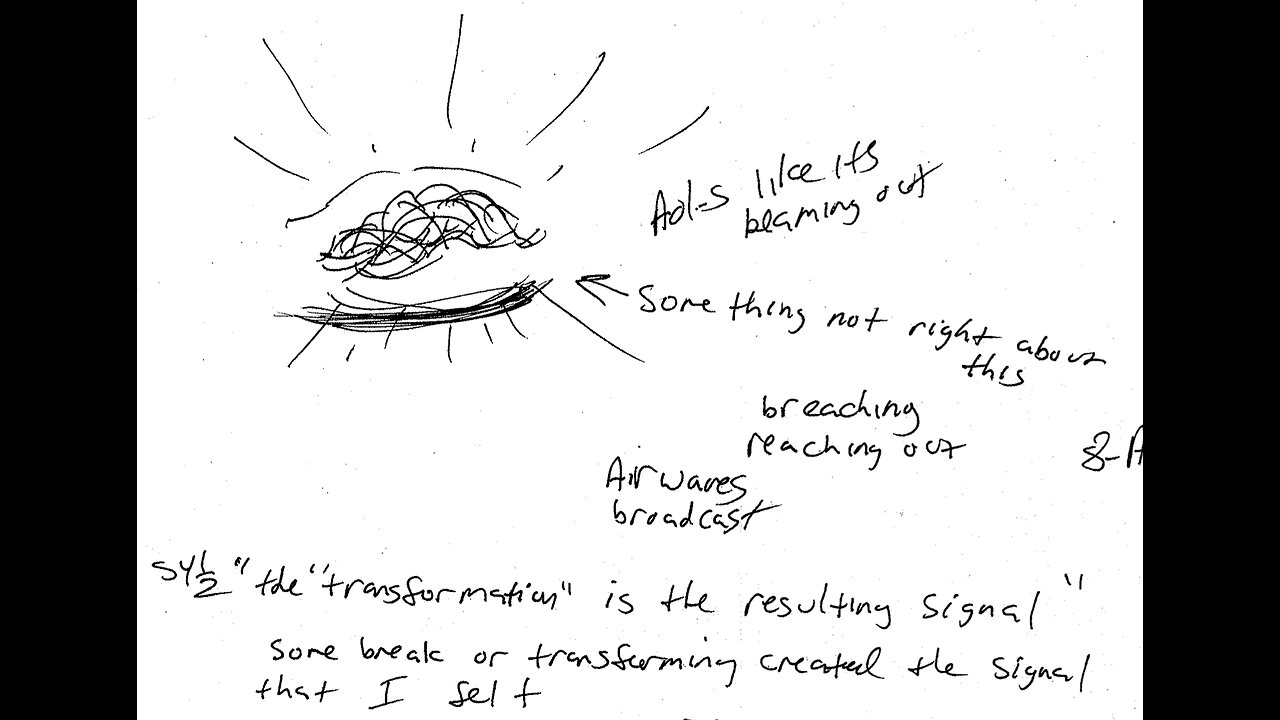 AOL-S like its
beaming out
Something not right about
this
breaching
reaching out
8-A
Airwaves
broadcast
S4 1/2 "the "transformation" is the resulting signal"
some break or transforming created the signal
that I felt